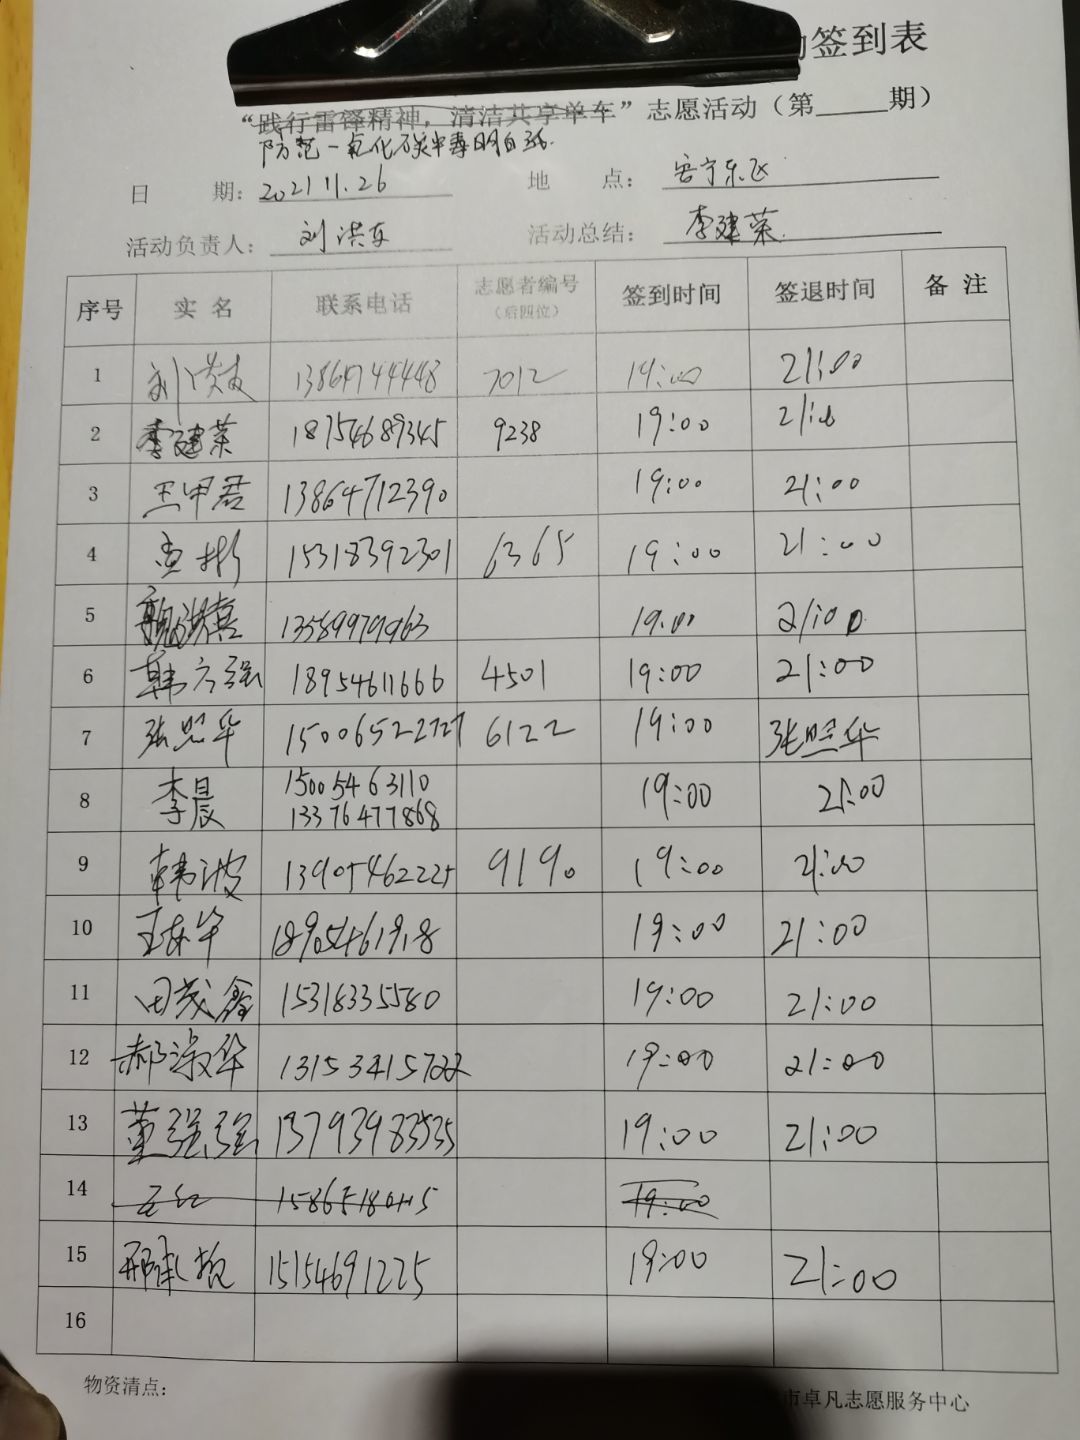 签到表
“践行雷锋精神，清洁共享单车”志愿活动（第____期）
防范一氧化碳中毒明白纸
日 期：2021 11.26 地 点：
活动负责人：刘洪 活动总结：李建荣
序号 实 名 联系电话 志愿者编号（后四位） 签到时间 签退时间 备 注
1 刘洪 13864744448 7012 19:00 21:00
2 李建荣 18754689345 9238 19:00 21:00
3 王甲君 13864712390 19:00 21:00
4 15318392301 6365 19:00 21:00
5 13589979963 19:00 21:00
6 韩 强 18954611666 4501 19:00 21:00
7 张照华 15006522727 6122 19:00 张照华
8 李晨 15005463110 19:00 21:00
13376477868
9 韩波 13905462225 9190 19:00 21:00
10 王 华 18905461918 19:00 21:00
11 田茂鑫 15318335580 19:00 21:00
12 郝淑华 13153415722 19:00 21:00
13 董强强 13793983535 19:00 21:00
14 19:00
15 邢 15154691225 19:00 21:00
16
物资清点：
市卓凡志愿服务中心